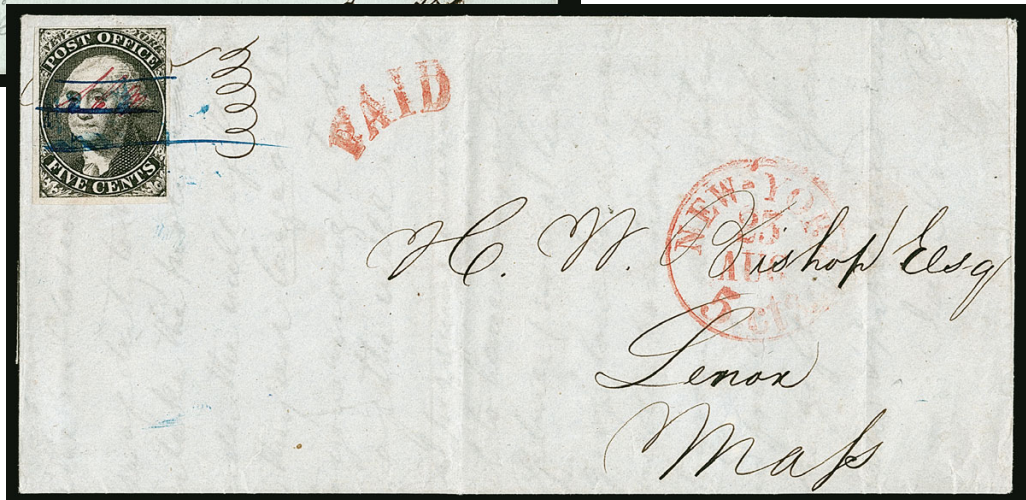 POST OFFICE
FIVE CENTS
PAID
NEW-YORK
25
AUG
5 cts
H. W. Bishop Esq
Lenox
Mass